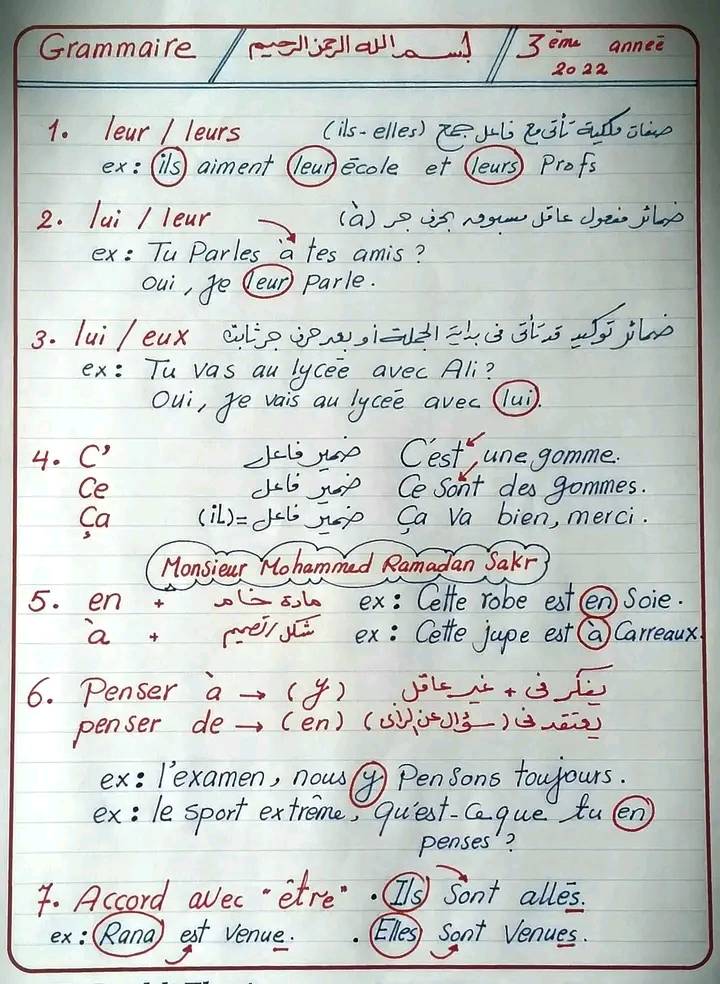 Grammaire // بسم الله الرحمن الرحيم // 3 ème anneē
2022
1. leur / leurs (ils - elles) صفات ملكية تأتى مع فاعل جمع
ex : ils aiment leur école et leurs Profs
2. lui / leur ضمائر مفعول عاقل مسبوق بحرف جر (à)
ex : Tu Parles à tes amis ?
Oui, je leur Parle.
3. lui / eux ضمائر توكيد قد تأتى فى بداية الجملة أو بعد حرف جر ثابت
ex : Tu vas au lyceē avec Ali ?
Oui, je vais au lyceē avec lui.
4. C' ضمير فاعل C'est une gomme.
Ce ضمير فاعل Ce sont des gommes.
Ça ضمير فاعل = (iL) Ça va bien, merci.
Monsieur Mohammed Ramadan Sakr
5. en + مادة خام ex : Cette robe est en Soie.
à + شكل / تصميم ex : Cette jupe est à Carreaux.
6. Penser à → (y) يفكر فى + غير عاقل
penser de → (en) يعتقد فى (سؤال عن الرأى)
ex : l'examen, nous y Pensons toujours.
ex : le sport extrême, qu'est-ce que tu en
penses ?
7. Accord avec "être" . Ils sont allēs.
ex : Rana est venue. . Elles sont Venues.